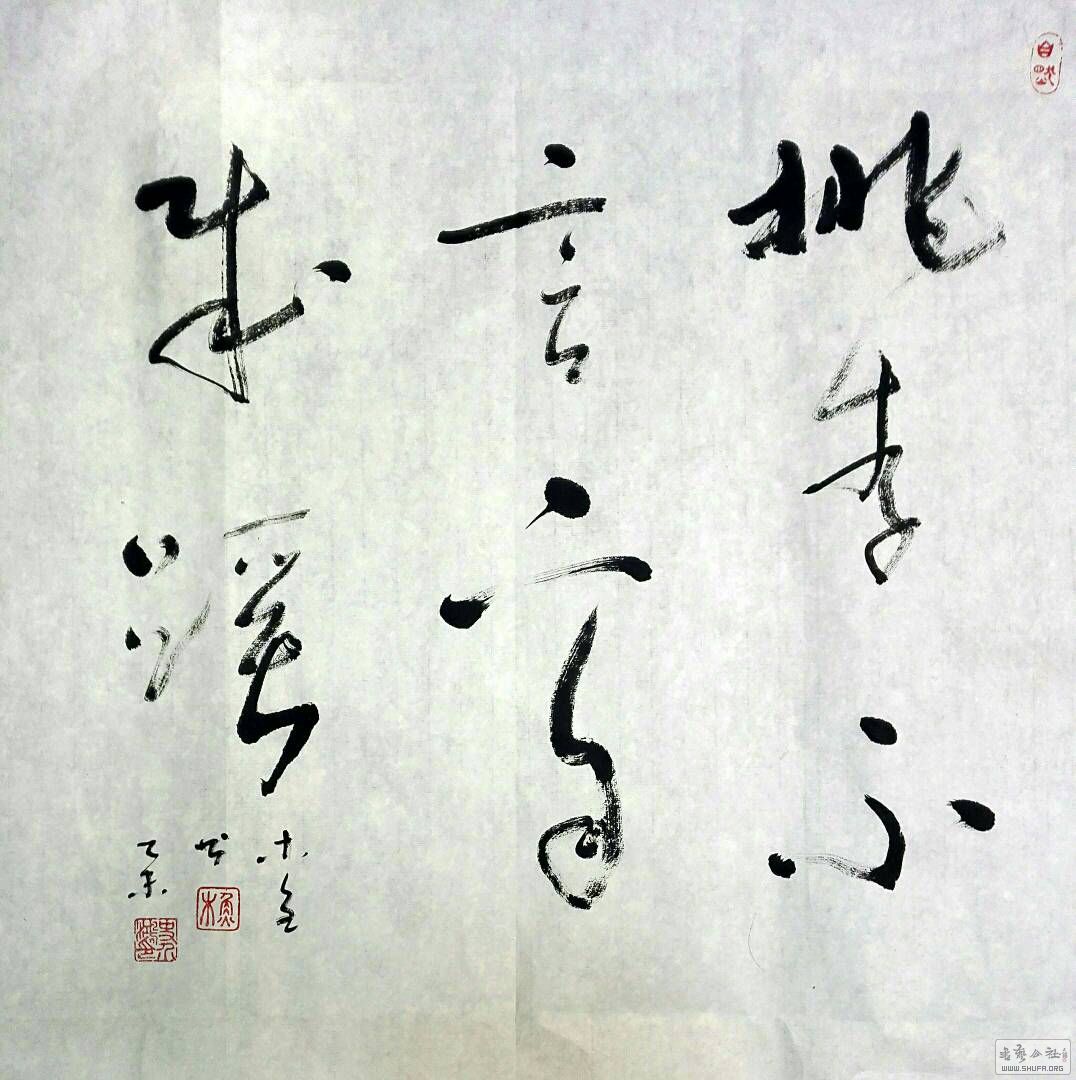 桃李不
言下自
成蹊
书
乙未
書藝公社
WWW.SHUFA.ORG